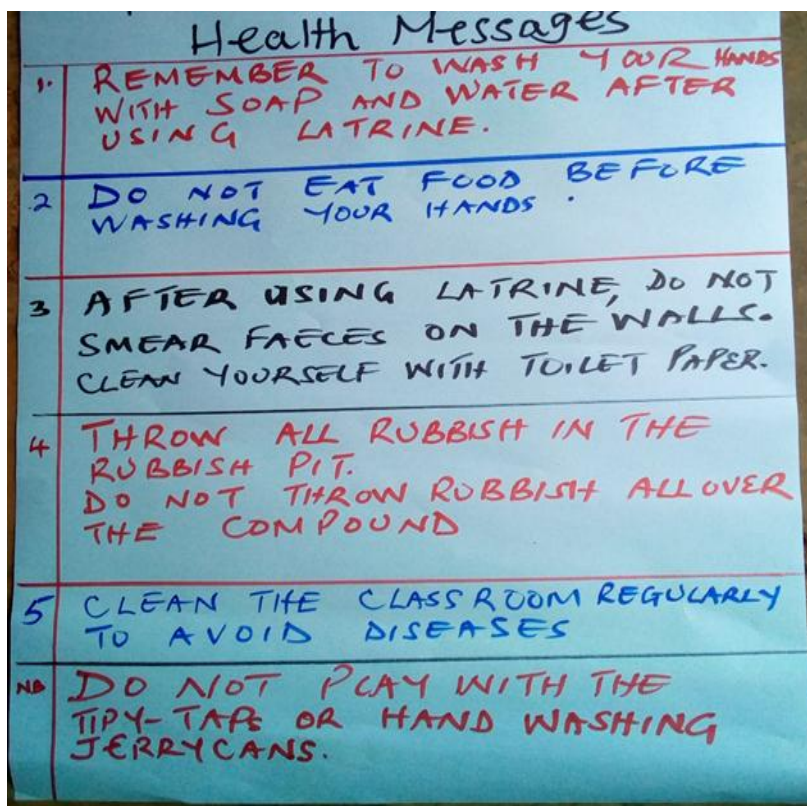 Health Messages
1. REMEMBER TO WASH YOUR HANDS
WITH SOAP AND WATER AFTER
USING LATRINE.
2 DO NOT EAT FOOD BEFORE
WASHING YOUR HANDS.
3 AFTER USING LATRINE, DO NOT
SMEAR FAECES ON THE WALLS.
CLEAN YOURSELF WITH TOILET PAPER.
4 THROW ALL RUBBISH IN THE
RUBBISH PIT.
DO NOT THROW RUBBISH ALL OVER
THE COMPOUND
5 CLEAN THE CLASSROOM REGULARLY
TO AVOID DISEASES
NB DO NOT PLAY WITH THE
TIPY-TAPS OR HAND WASHING
JERRYCANS.